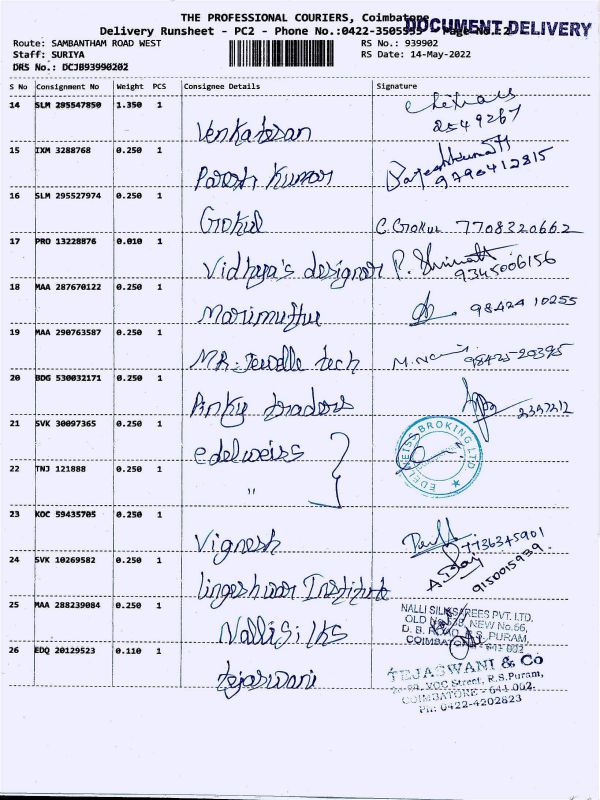 THE PROFESSIONAL COURIERS, Coimbatore
DOCUMENT DELIVERY
Delivery Runsheet - PC2 - Phone No.:0422-3505555 Page No.:2
Route: SAMBANTHAM ROAD WEST RS No.: 939902
Staff: SURIYA RS Date: 14-May-2022
DRS No.: DCJB93990202
S No Consignment No Weight PCS Consignee Details Signature
14 SLM 285547850 1.350 1
Venkatesan 2549267
15 IXM 3288768 0.250 1
Paresh Kumar Rajeshkumar 9790412815
16 SLM 295527974 0.250 1
Gokul C. Gokul 7708320662
17 PRO 13228876 0.010 1
Vidhya's designer P. 9345006156
18 MAA 287670122 0.250 1
Marimuthu 98424 10255
19 MAA 290763587 0.250 1
MR. Jewelle tech 98425 20395
20 BDG 530032171 0.250 1
Pinky traders 2397212
21 SVK 30097365 0.250 1
edelweiss
EDELWEISS BROKING LTD
22 TNJ 121888 0.250 1
"
23 KOC 59435705 0.250 1
Vignesh 7736345901
24 SVK 10269582 0.250 1
lingeshwar Institute 9150015939
25 MAA 288239084 0.250 1
Nalli Silks
NALLI SILK SAREES PVT. LTD.
OLD NEW No.56,
D. B. ROAD, R.S. PURAM,
COIMBATORE - 641 002
26 EDQ 20129523 0.110 1
tejaswani
TEJASWANI & Co
Street, R.S.Puram,
COIMBATORE - 641 002.
PH: 0422-4202823